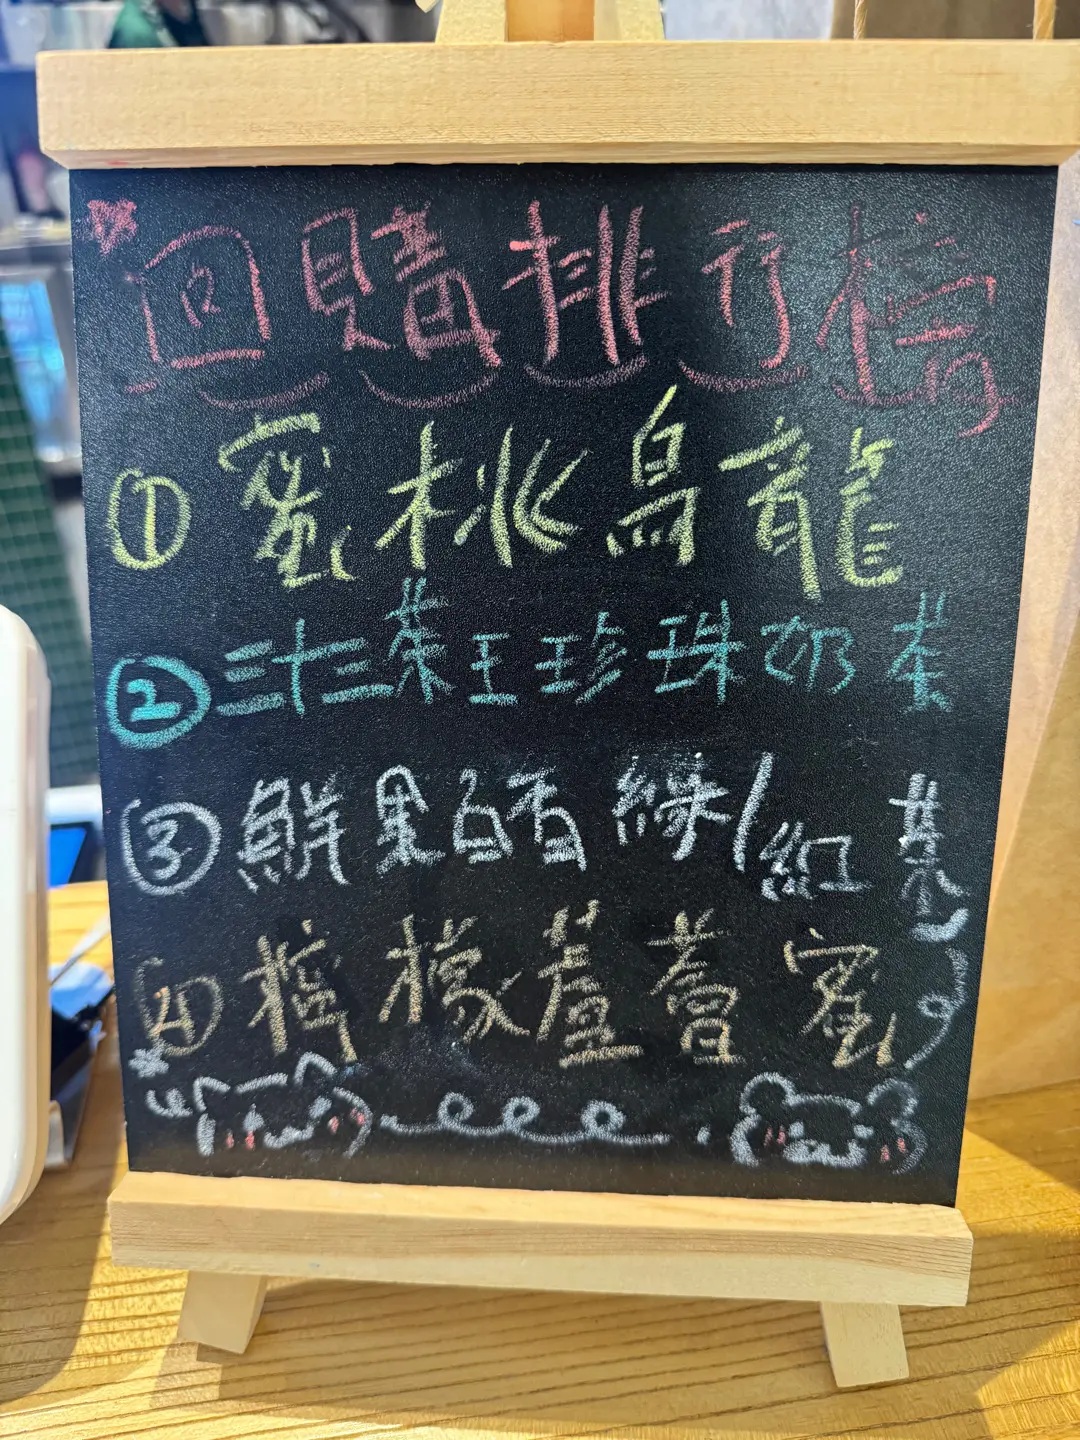 回購排行榜
① 蜜桃烏龍
② 三十三茶王珍珠奶茶
③ 鮮果百香綠/紅茶
④ 檸檬蘆薈蜜